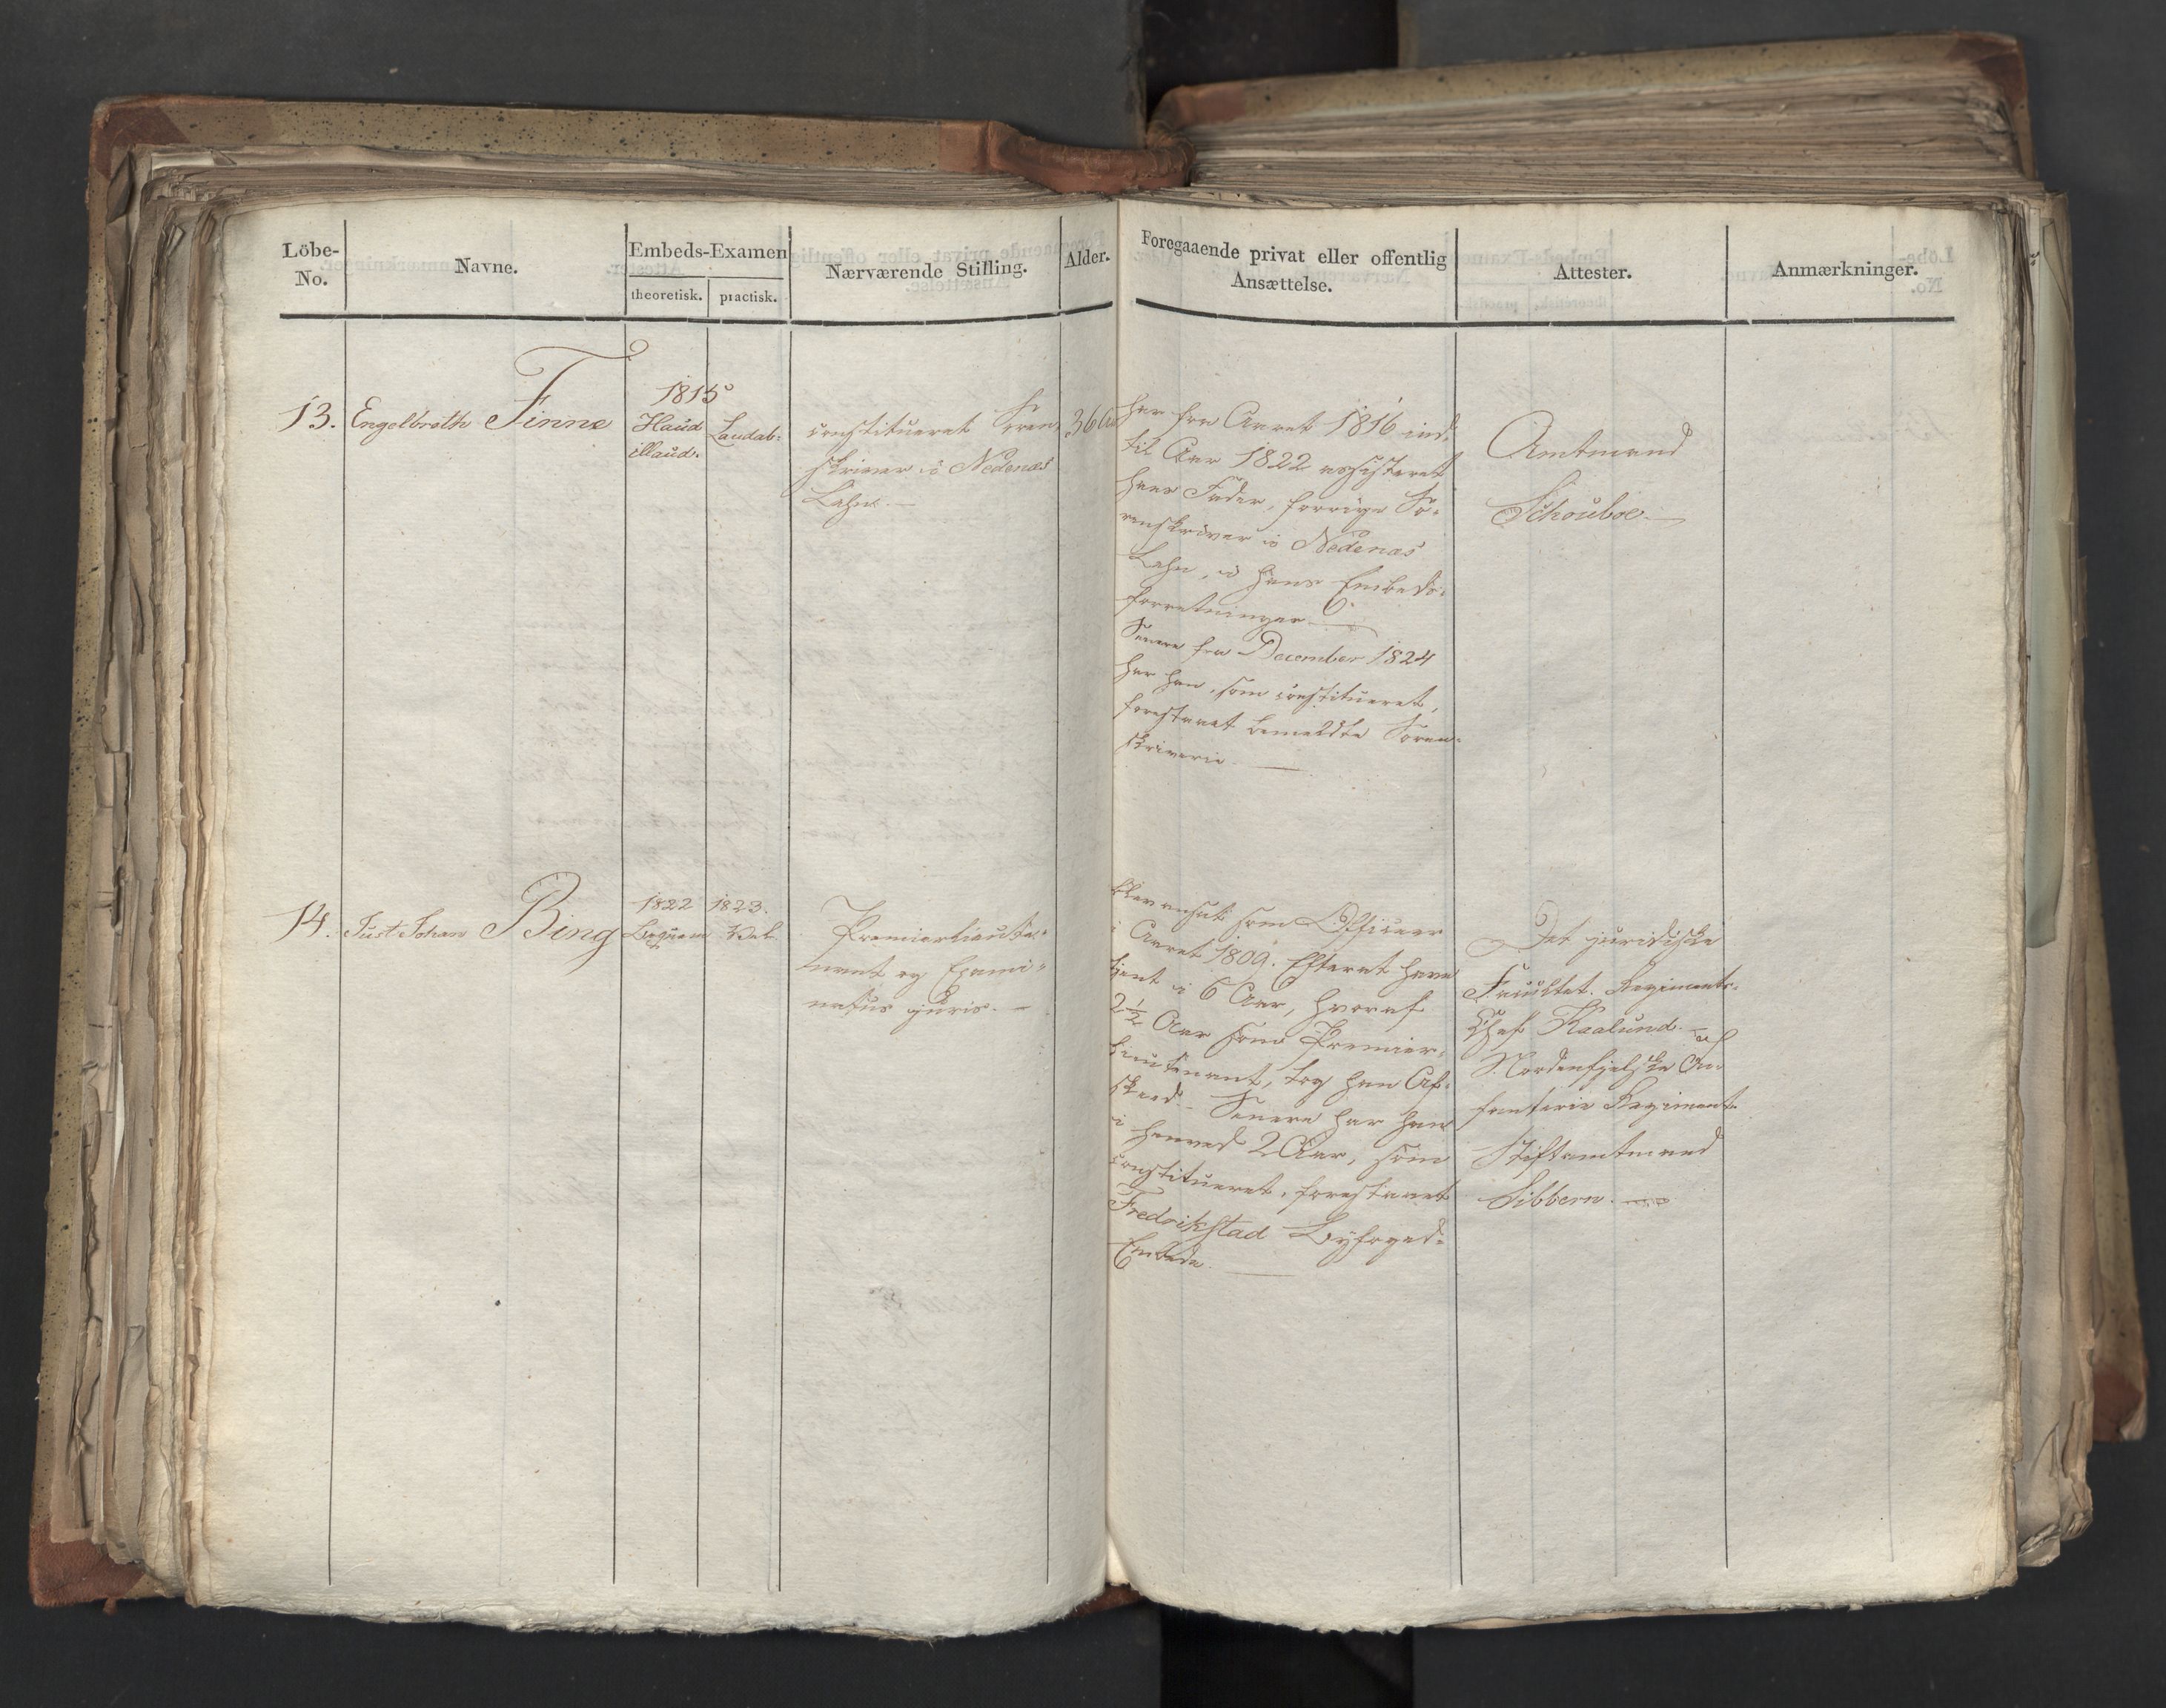 Löbe-
No.
Navne.
Embeds-Examen
theoretisk.
practisk.
Nærværende Stilling.
Alder.
Foregaaende privat eller offentlig
Ansættelse.
Attester.
Anmærkninger.
13.
Engelbreth Finne
1815
Haud
illaud.
Laudab:
constitueret Soren-
skriver i Nedenæs
Lehn. —
36 Aar
har fra Aaret 1816 ind-
til Aar 1822 assisteret
hans Fader, forrige So-
renskriver i Nedenæs
Lehn, i hans Embeds-
forretninger. —
Senere fra December 1824
har han, som constitueret,
forestaaet bemeldte Soren-
skriverie. —
Amtmand
Schouboe. —
14.
Just Johan Bing
1822
Beqvem
1823.
Vel
Premierlieute-
nant og Exami-
natus juris. —
blev ansat som Officeer
i Aaret 1809. Efterat have
tjent i 6 Aar, hvoraf
2½ Aar som Premier-
lieutenant, tog han Af-
skeed. Senere har han
i henved 2 Aar, som
constitueret, forestaaet
Fredrikstad Byfoged-
Embede. —
Det juridiske
Facultet. Regiments-
Chef Kaalund. —
Nordenfjelske In-
fanterie Regiment
Stiftamtmand
Sibbern. —